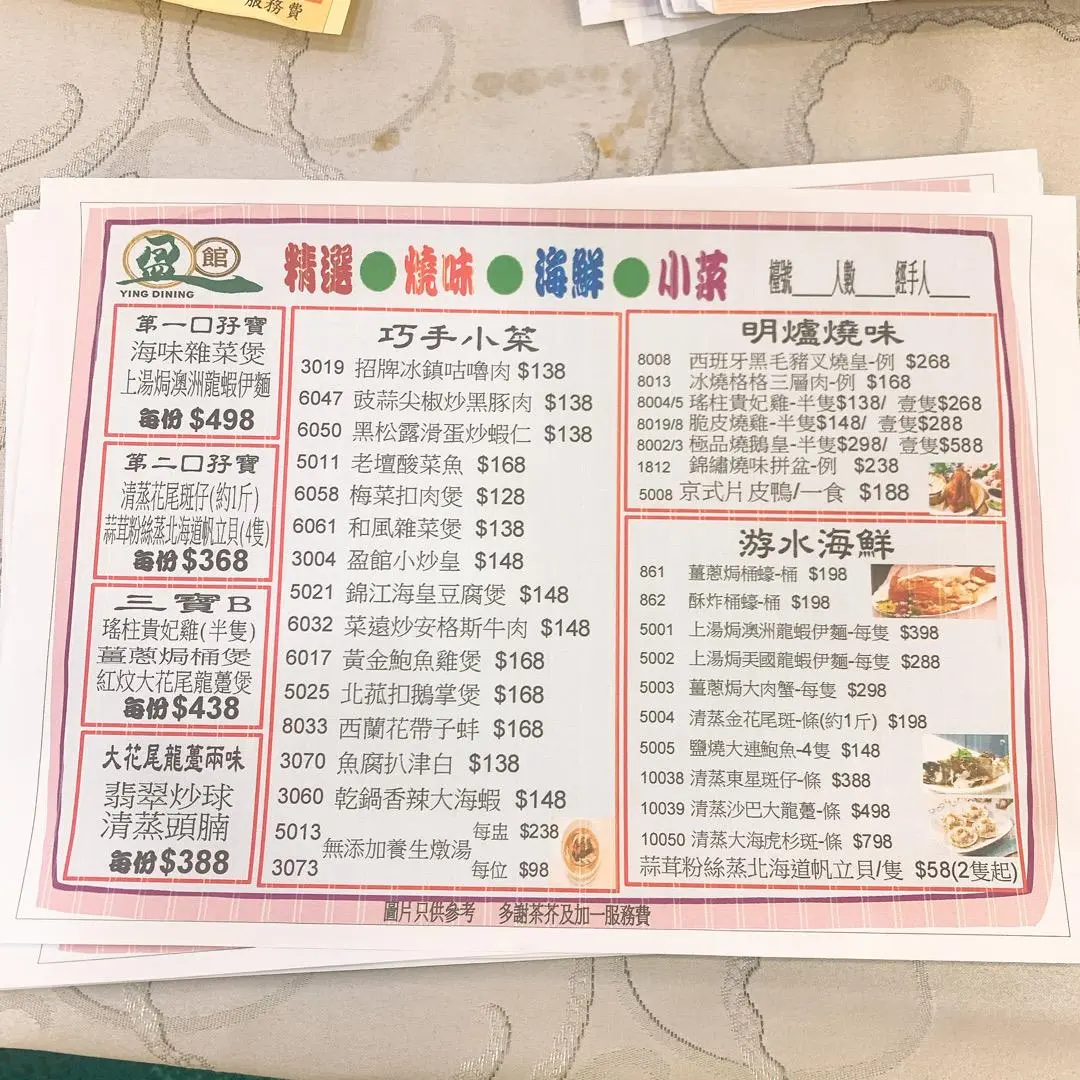 服務費
盈館
YING DINING
精選●燒味●海鮮●小菜
檯號____人數____經手人____
第一口孖寶
海味雜菜煲
上湯焗澳洲龍蝦伊麵
每份$498
第二口孖寶
清蒸花尾斑仔(約1斤)
蒜茸粉絲蒸北海道帆立貝(4隻)
每份$368
三寶B
瑤柱貴妃雞(半隻)
薑蔥焗桶煲
紅炆大花尾龍躉煲
每份$438
大花尾龍躉兩味
翡翠炒球
清蒸頭腩
每份$388
巧手小菜
3019 招牌冰鎮咕嚕肉 $138
6047 豉蒜尖椒炒黑豚肉 $138
6050 黑松露滑蛋炒蝦仁 $138
5011 老壇酸菜魚 $168
6058 梅菜扣肉煲 $128
6061 和風雜菜煲 $138
3004 盈館小炒皇 $148
5021 錦江海皇豆腐煲 $148
6032 菜遠炒安格斯牛肉 $148
6017 黃金鮑魚雞煲 $168
5025 北菰扣鵝掌煲 $168
8033 西蘭花帶子蚌 $168
3070 魚腐扒津白 $138
3060 乾鍋香辣大海蝦 $148
5013 每盅 $238
無添加養生燉湯
3073 每位 $98
明爐燒味
8008 西班牙黑毛豬叉燒皇-例 $268
8013 冰燒格格三層肉-例 $168
8004/5 瑤柱貴妃雞-半隻$138/ 壹隻$268
8019/8 脆皮燒雞-半隻$148/ 壹隻$288
8002/3 極品燒鵝皇-半隻$298/ 壹隻$588
1812 錦繡燒味拼盆-例 $238
5008 京式片皮鴨/一食 $188
游水海鮮
861 薑蔥焗桶蠔-桶 $198
862 酥炸桶蠔-桶 $198
5001 上湯焗澳洲龍蝦伊麵-每隻 $398
5002 上湯焗美國龍蝦伊麵-每隻 $288
5003 薑蔥焗大肉蟹-每隻 $298
5004 清蒸金花尾斑-條(約1斤) $198
5005 鹽燒大連鮑魚-4隻 $148
10038 清蒸東星斑仔-條 $388
10039 清蒸沙巴大龍躉-條 $498
10050 清蒸大海虎杉斑-條 $798
蒜茸粉絲蒸北海道帆立貝/隻 $58(2隻起)
圖片只供參考 多謝茶芥及加一服務費